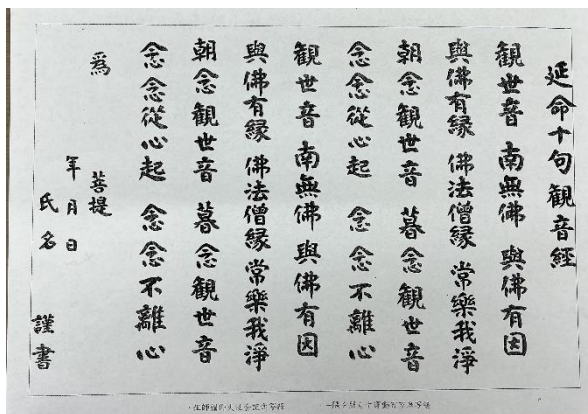 延命十句観音経
観世音 南無佛 與佛有因
與佛有縁 佛法僧縁 常樂我淨
朝念観世音 暮念観世音
念念從心起 念念不離心
観世音 南無佛 與佛有因
與佛有縁 佛法僧縁 常樂我淨
朝念観世音 暮念観世音
念念從心起 念念不離心
為 菩提
年月日
氏名 謹書